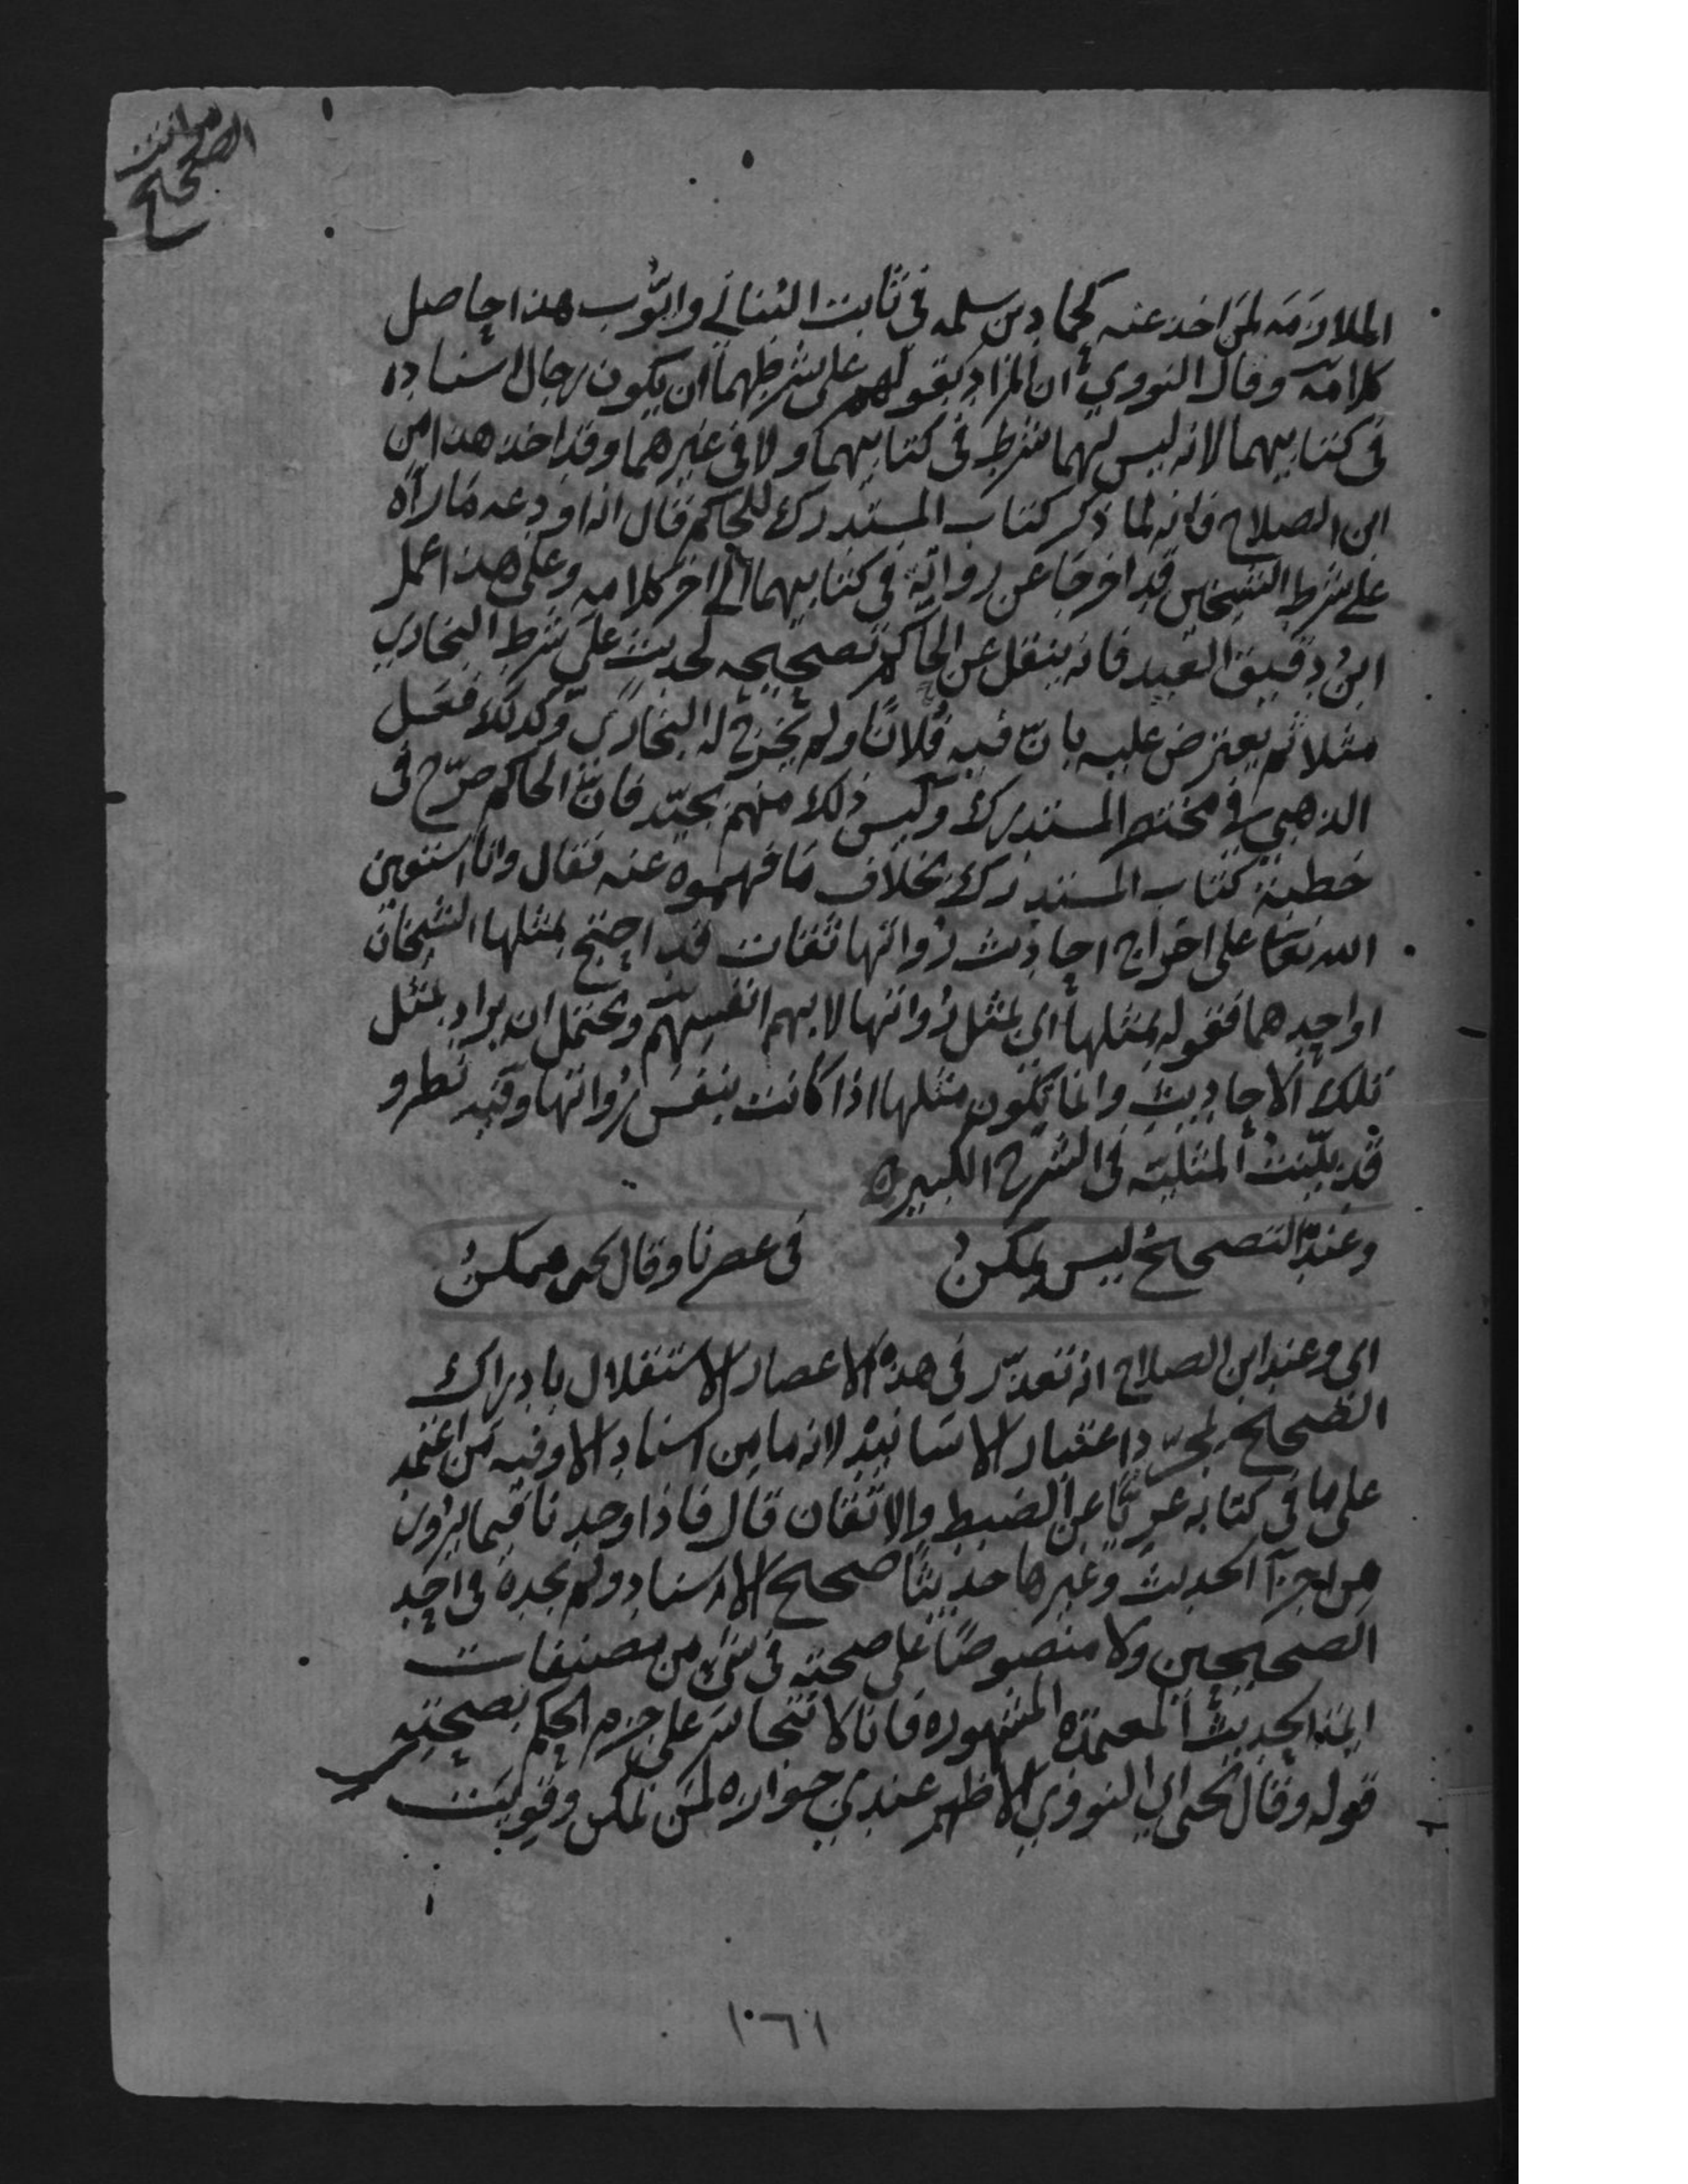 مراتب
الصحيح
الملازمه لمن اخذ عنه كحماد بن سلمه في ثابت البناني وايوب هذا حاصل
كلامه وقال النووي ان المراد بقولهم على شرطهما ان يكون رجال اسناده
في كتابيهما لانه ليس لهما شرط في كتابيهما ولا في غيرهما وقد اخذ هذا من
ابن الصلاح فانه لما ذكر كتاب المستدرك للحاكم قال انه اودعه ما رآه
على شرط الشيخين قد اخرجا عن رواته في كتابيهما الى اخر كلامه وعلى هذا عمل
ابن دقيق العيد فانه ينقل عن الحاكم تصحيحه لحديث على شرط البخاري
مثلا ثم يعترض عليه بان فيه فلانا ولم يخرج له البخاري وكذلك فعل
الذهبي في مختصر المستدرك وليس ذلك منهم بجيد فان الحاكم صرح في
خطبة كتاب المستدرك بخلاف ما فهموه عنه فقال وانا استعين
الله تعا على اخراج احاديث رواتها ثقات قد احتج بمثلها الشيخان
او احدهما فقوله بمثلها اي بمثل رواتها لا بهم انفسهم ويحتمل ان يراد بمثل
تلك الاحاديث وانما يكون مثلها اذا كانت بنفس رواتها وفيه نظر و
قد بينت المثلية في الشرح الكبير ه
وعنده التصحيح ليس يمكن في عصرنا وقال يحيى ممكن
اي وعند ابن الصلاح انه تعذر في هذه الاعصار الاستقلال بادراك
الصحيح بمجرد اعتبار الاسانيد لانه ما من اسناد الا وفيه من اعتمد
على ما في كتابه عريا عن الضبط والاتقان قال فاذا وجدنا فيما يروى
من اجزآ الحديث وغيرها حديثا صحيح الاسناد ولم نجده في احد
الصحيحين ولا منصوصا على صحته في شئ من مصنفات
ايمة الحديث المعتمدة المشهوره فانا لا نتجاسر على جزم الحكم بصحته
قوله وقال يحيى اي النووي الاظهر عندي جوازه لمن تمكن وقويت
١٠٦١